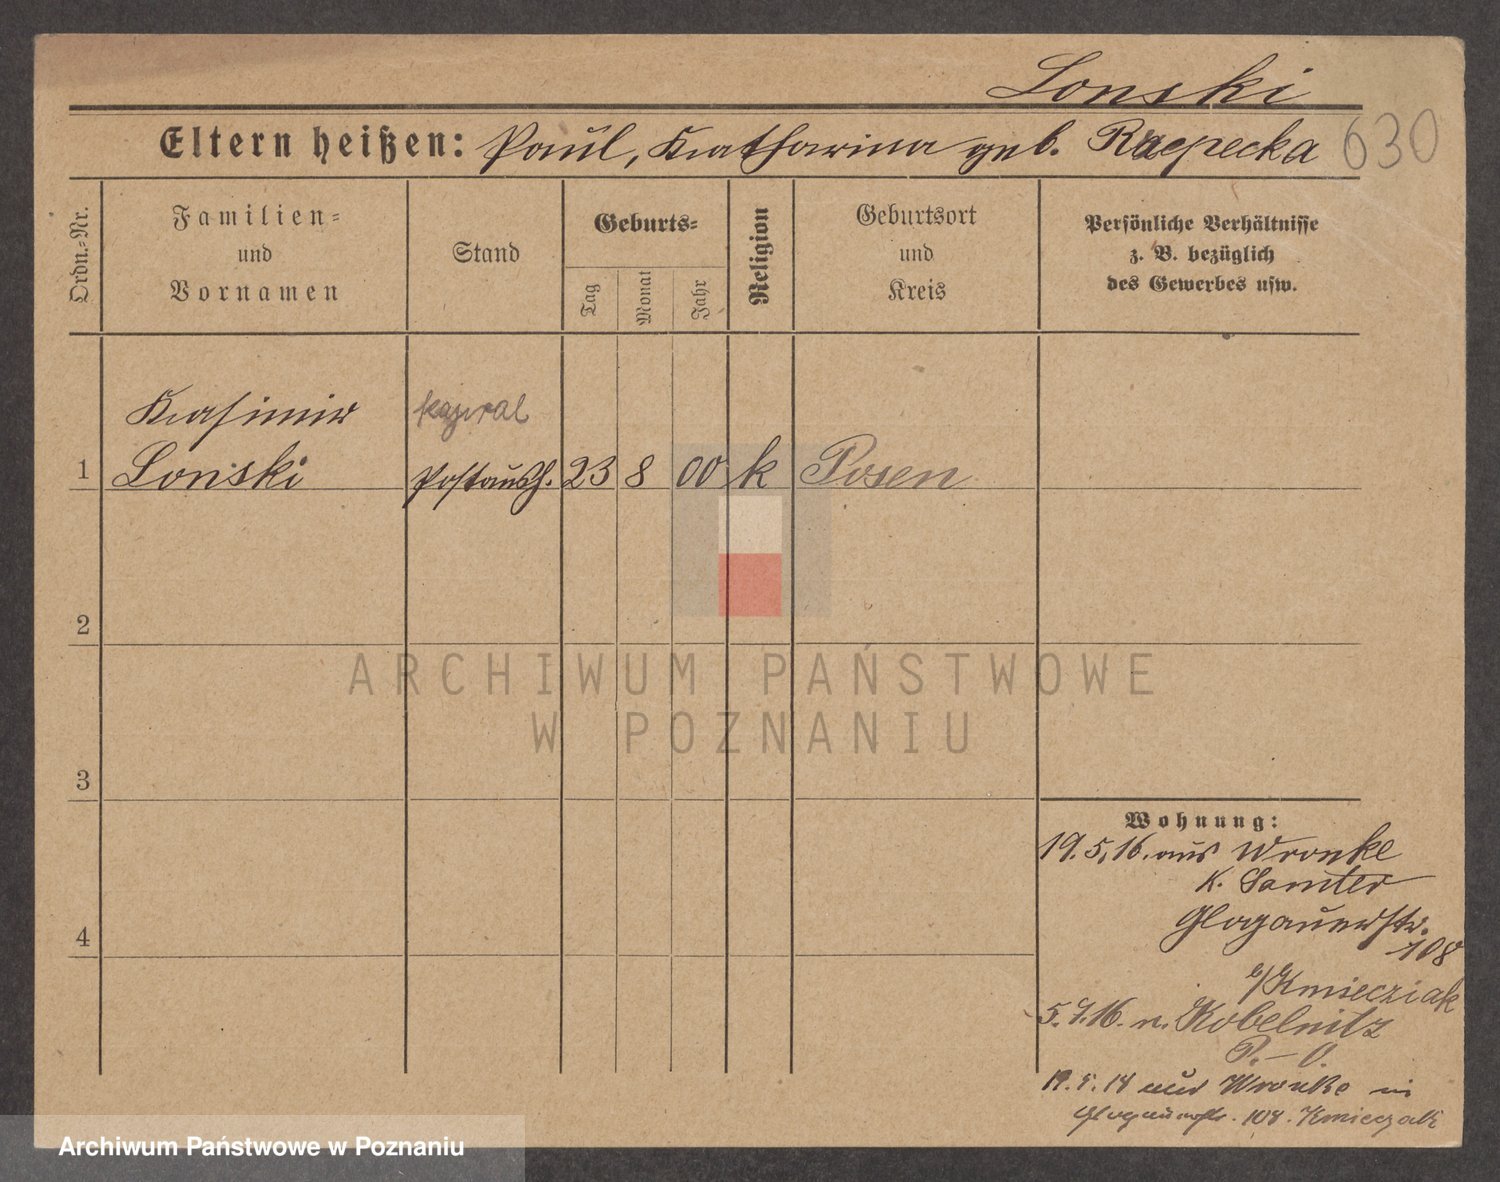 Lonski
Eltern heißen: Paul, Katharina geb. Rzepecka
630
Ordn.-Nr.
Familien-
und
Vornamen
Stand
Geburts-
Tag
Monat
Jahr
Religion
Geburtsort
und
Kreis
Persönliche Verhältnisse
z. B. bezüglich
des Gewerbes usw.
Kasimir
kapral
1 Lonski Postaush. 23 8 00 k Posen
2
ARCHIWUM PAŃSTWOWE
W POZNANIU
3
Wohnung:
19.5.16. aus Wronke
K. Samter
Glogauerstr.
108
4
b/Kmiecziak
5.7.16. n. Kobelnitz
P.-O.
aus Wronke in
Glogauerstr. 108. Kmieczak
Archiwum Państwowe w Poznaniu